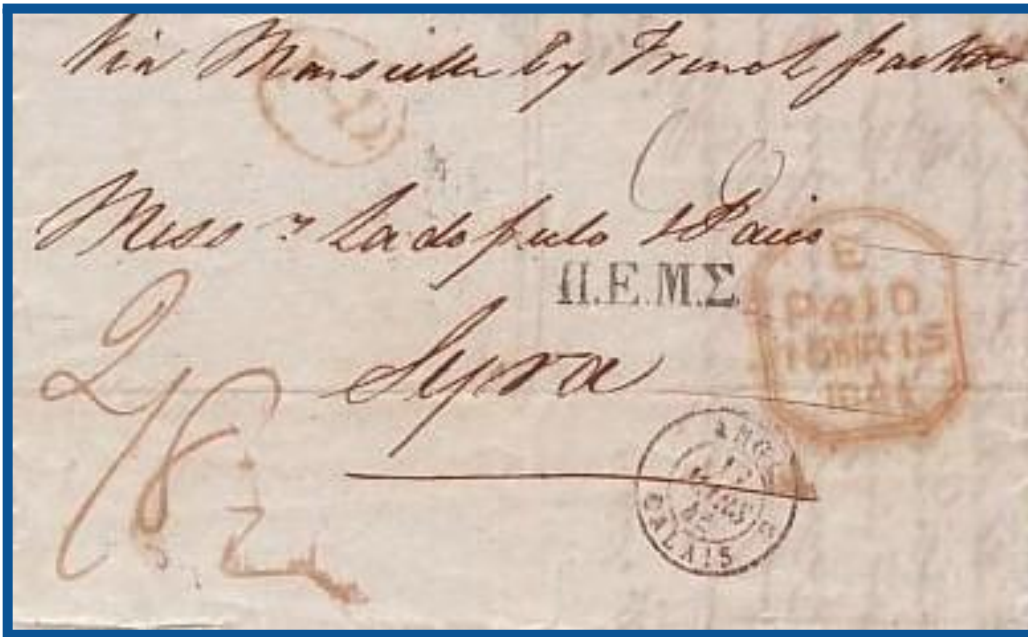 Via Marseille by French packet
PD
Messrs Ladopulo & Pario
Π.Ε.Μ.Σ.
E
PAID
15MR15
Syra
2/8½
CALAIS